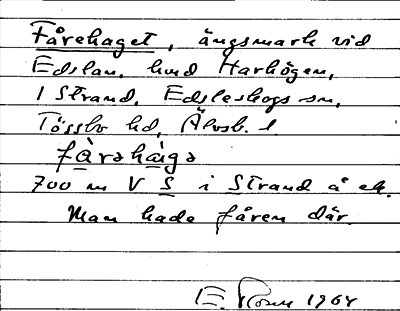 Fårehaget, ängsmark vid
Edslan, hmd Harhögen,
1 Strand, Edsleskogs sn,
Tössbo hd, Älvsb. l
fàrəhàigə
700 m V S i Strand å ek.
Man hade fåren där.
E. 1964